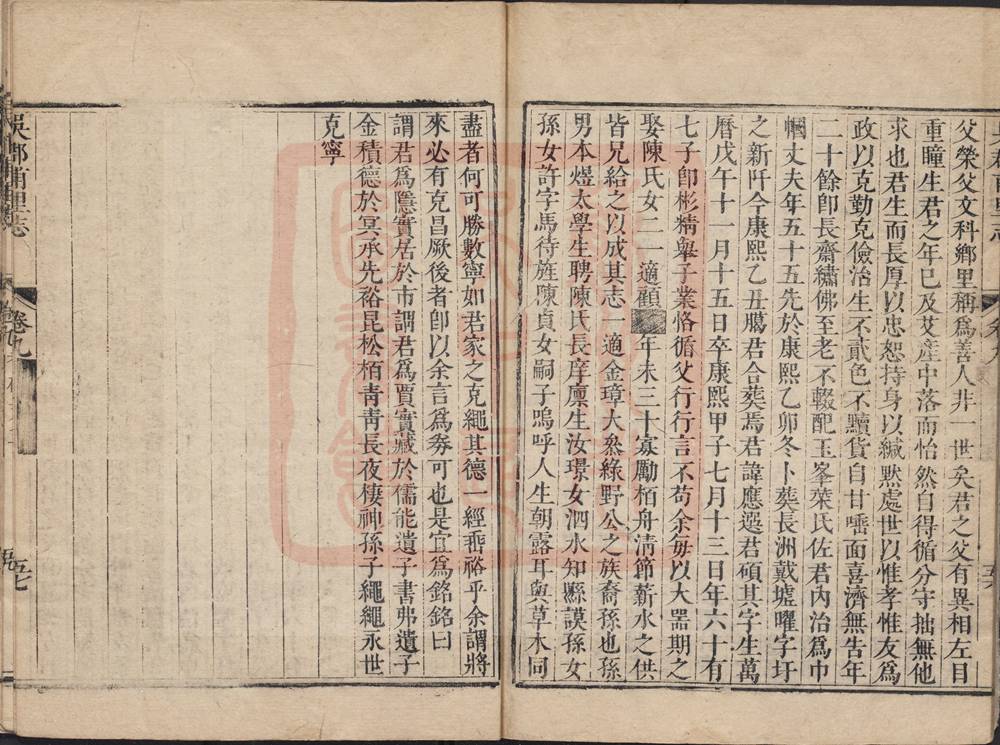 父榮父文科鄉里稱爲善人非一世矣君之父有異相左目
重瞳生君之年已及艾産中落而怡然自得循分守拙無他
求也君生而長厚以忠恕持身以緘默處世以惟孝惟友爲
政以克勤克儉治生不貳色不黷貨自甘唾面喜濟無告年
二十餘卽長齋繡佛至老不輟配玉峯葉氏佐君內治爲巾
幗丈夫年五十五先於康熙乙卯冬卜葬長洲戴墟曜字圩
之新阡今康熙乙丑臈君合葬焉君諱應選君碩其字生萬
曆戊午十一月十五日卒康熙甲子七月十三日年六十有
七子卽彬精舉子業恪循父行行言不苟余每以大器期之
娶陳氏女二一適顧年未三十寡勵栢舟清節薪水之供
皆兄給之以成其志一適金璋大叅綠野公之族裔孫也孫
男本煜太學生聘陳氏長庠廪生汝璟女泗水知縣謨孫女
孫女許字馬待旌陳貞女嗣子嗚呼人生朝露耳與草木同
盡者何可勝數寧如君家之克繩其德一經垂裕乎余謂將
來必有克昌厥後者卽以余言爲券可也是宜爲銘銘曰
謂君爲隱實居於市謂君爲賈實藏於儒能遺子書弗遺子
金積德於冥承先裕昆松栢靑靑長夜棲神孫子繩繩永世
克寧
吳郡甫里志
卷九
五七